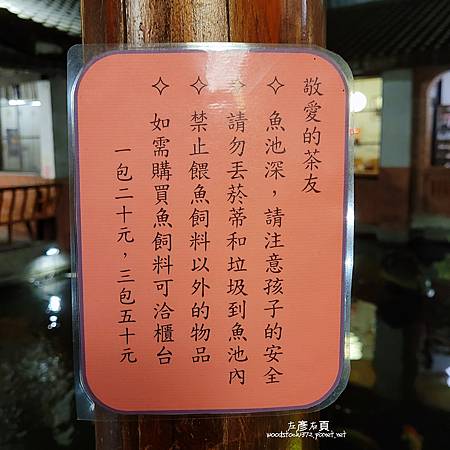 敬愛的茶友
✧ 魚池深，請注意孩子的安全
✧ 請勿丟菸蒂和垃圾到魚池內
✧ 禁止餵魚飼料以外的物品
✧ 如需購買魚飼料可洽櫃台
一包二十元，三包五十元
左彥右頁
woodstock372.pixnet.net